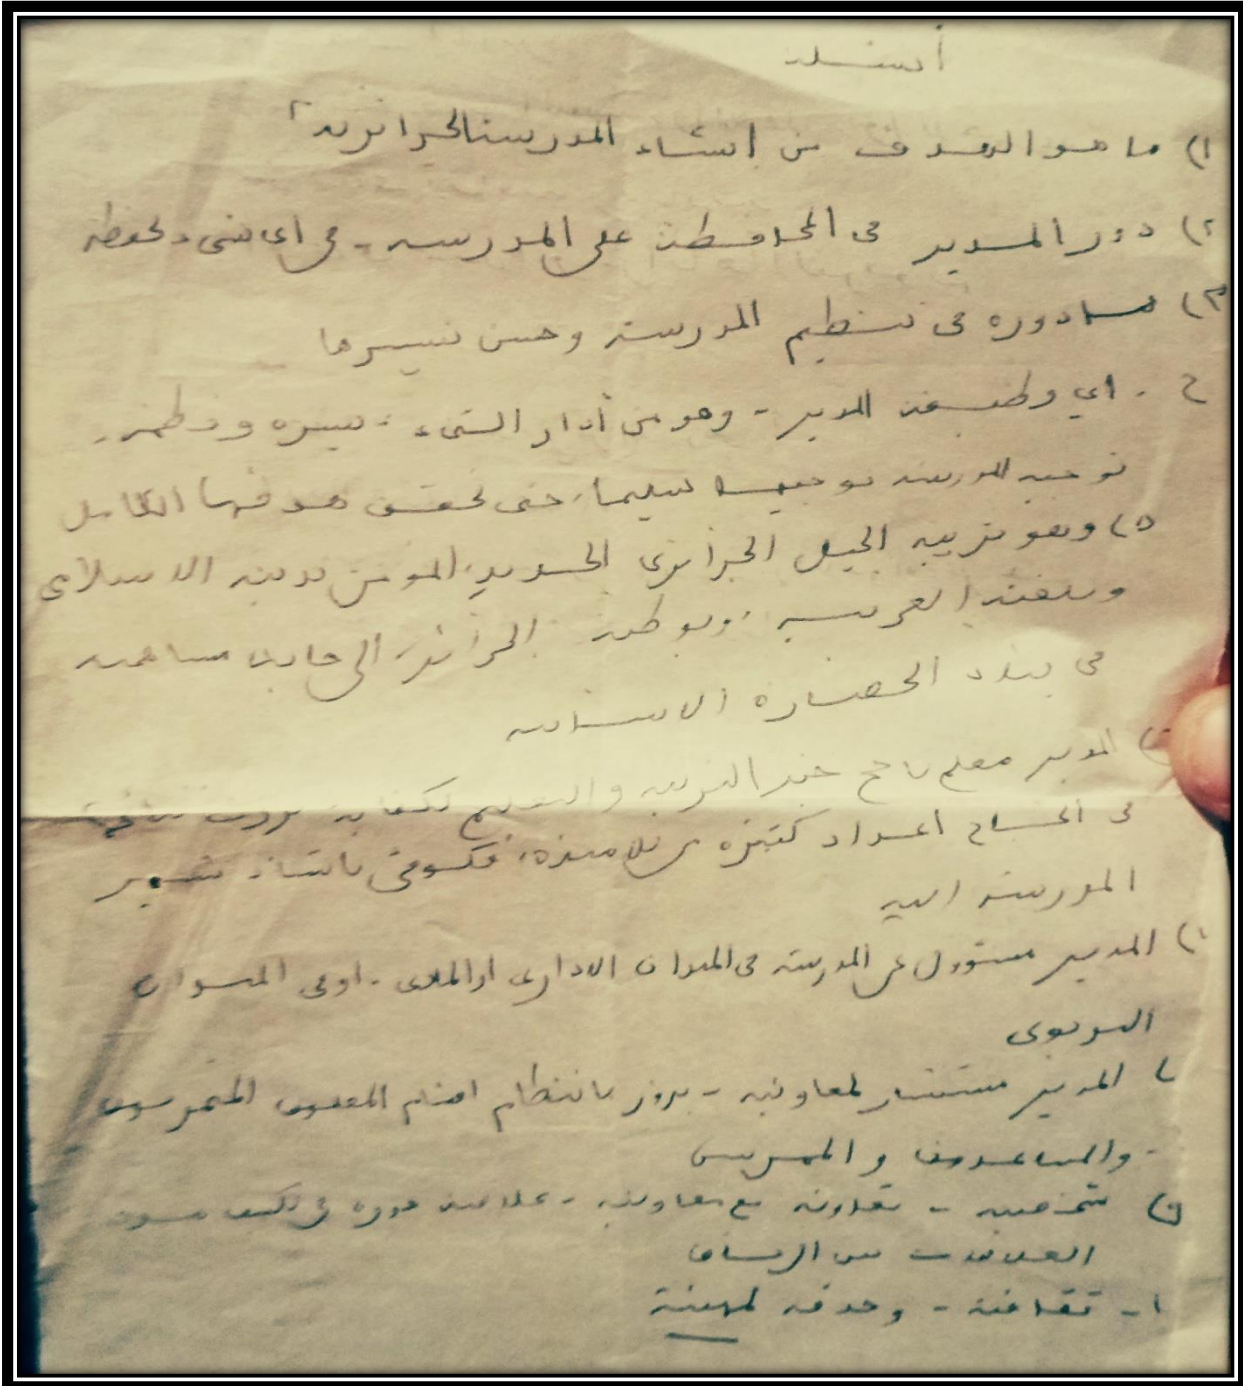 أسئلة
١) ما هو الهدف من إنشاء المدرسة الجزائرية؟
٢) دور المدير في المحافظة على المدرسة - في اي شيء
٣) ما دوره في تنظيم المدرسة وحسن تسييرها
ج . اي وظيفة المدير - وهو من أدار الشيء : سيره ونظمه
توجيه المدرسة توجيها سليما، حتى تحقق هدفها الكامل
٥) وهو تربية الجيل الجزائري الجديد، المؤمن بدينه الاسلامي
وبلغته العربية، وبوطنه الجزائر، الى جانب مساهمته
في بناء الحضارة الانسانية
المدير معلم ناجح خبر التربية والتعليم
في انجاح اعداد كثيرة من تلامذة، تسيير
المدرسة اليه
١) المدير مسؤول عن المدرسة في الميدان الاداري او المادي - او في الميدان
التربوي
المدير مستشار لمعاونيه - بانتظام اقسام المعلمين المتمرسين
- والمساعدين و الممرنين
شخصيته - تعاونه مع معاونيه - دوره في
العلاقات بين
١- ثقافته - وحذقه لمهنته